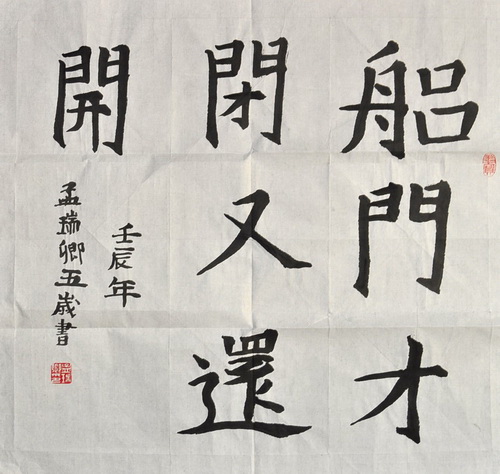 船門才
閉又還
開
壬辰年
孟瑞卿五歲書